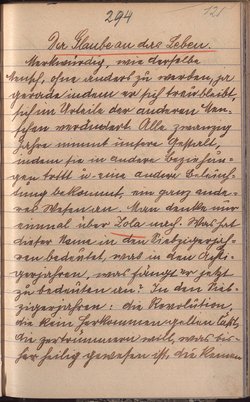 294
121
Der Glaube an das Leben.
Merkwürdig, wie derselbe
Mensch, ohne anders zu werden, ja
gerade indem er sich treu bleibt,
sich im Urteile der anderen Men-
schen verändert. Alle zwanzig
Jahre nimmt unsere Gestalt,
indem sie in andere Beziehun-
gen tritt u eine andere Beleuch-
tung bekommt, ein ganz ande-
res Wesen an. Man denke nur
einmal über Zola nach. Was hat
dieser Name in den Siebzigerjah-
ren bedeutet, was in den Acht-
zigerjahren, was fängt er jetzt
zu bedeuten an? In den Sieb-
zigerjahren: die Revolution,
die kein Herkommen gelten läßt,
die zertrümmern will, was bis-
her heilig gewesen ist, die keinen